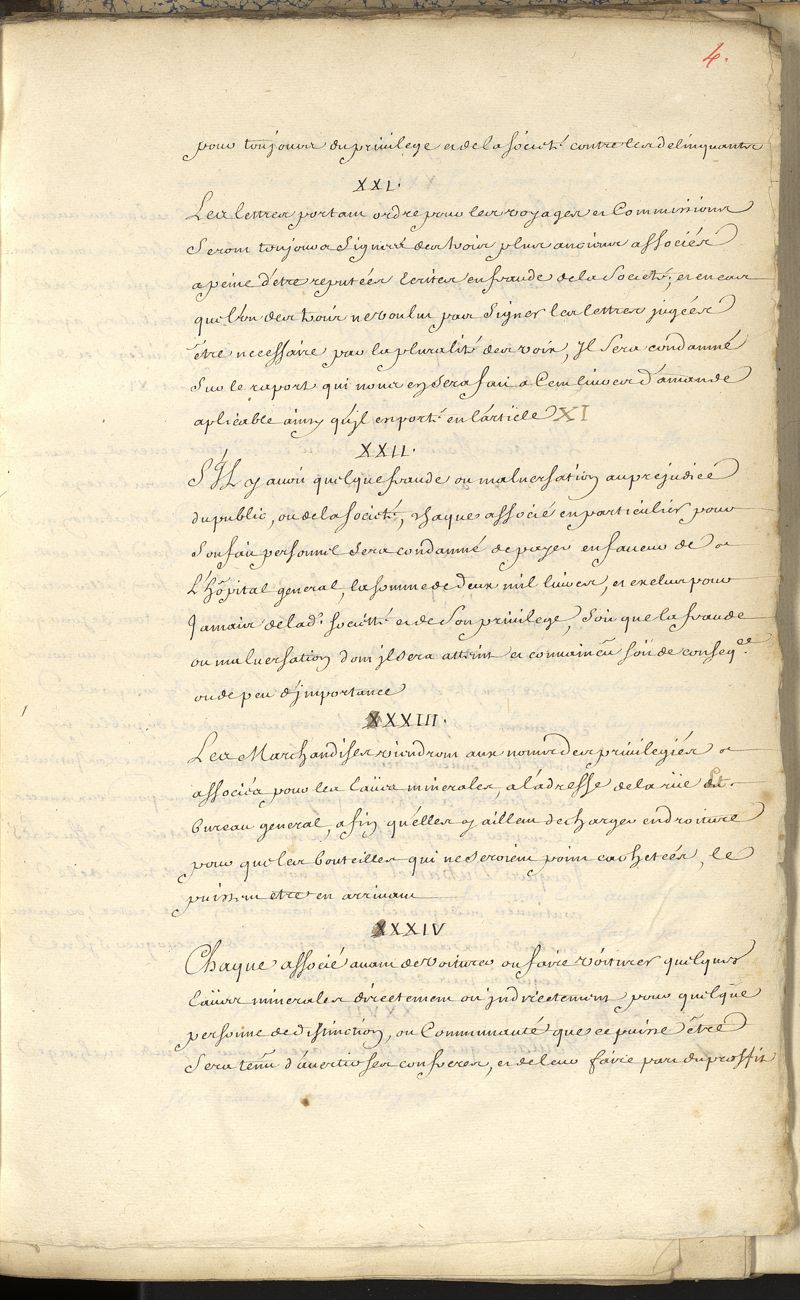 4.
pour toujours du privilege et de la société contre les delinquants
XXI.
Les lettres portant ordre pour les voyages et Commissions
Seront toujours Signées des trois plus anciens associés
a peine d'etre reputées Ecrites en fraude de la Societé; et en cas
que l'un des trois ne voulut pas Signer les lettres jugées
être necessaire par la pluralité des voix, Il Sera condamné
Sur le raport qui nous en Sera fait a Cent livres d'amande
aplicable ainsy qu'jl est porté en l'article XI
XXII.
S'Il y avoit quelque fraude ou malversation au prejudice
du public, ou de la societé, chaque associé en particulier pour
Son fait personnel Sera condamné de payer en faveur de
l'hôpital general, la somme de deux mil livres, et exclus pour
Jamais de lad.e societté et de Son privilege, Soit que la fraude
ou malversation dont jl sera atteint et convaincu soit de conseq.ce
ou de peu d'jmportance
XXXIII.
Les Marchandises viendront aux noms des privilegiés
associés pour les Eaües minerales, a l'adresse de la rüe et
bureau general, afin qu'elles y aillent decharger en droiture
pour que les bouteilles qui ne seroient point cachetées, le
puissent etre en arrivant
XXXIV
Chaque associé avant de voiturer ou faire voiturer quelques
Eaües minerales directement ou jndirectement pour quelque
personne de distinction, ou Communauté que ce puisse être
Sera tenu d'avertir ses confreres, et de leur faire part du proffit